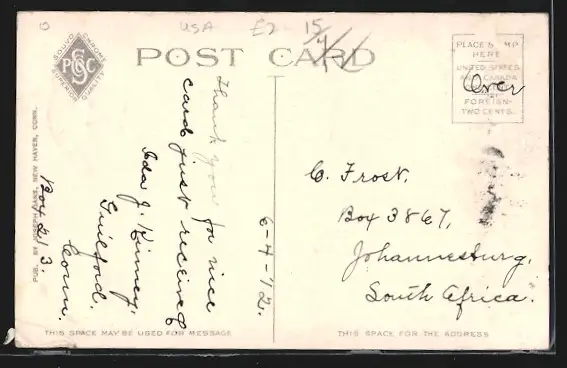 USA £2 15/
SOUVO CHROME
P S C C
SUPERIOR QUALITY
POST CARD
PLACE STAMP
HERE
UNITED STATES
AND CANADA
Over
FOREIGN-
TWO CENTS.
PUB. BY JOSEPH SANS, NEW HAVEN, CONN.
Thank you for nice
card just received
Ida J. Kinney,
Guilford,
Conn.
Box 213.
6-4-12.
C. Frost.
Box 3867,
Johannesburg,
South Africa.
THIS SPACE MAY BE USED FOR MESSAGE
THIS SPACE FOR THE ADDRESS